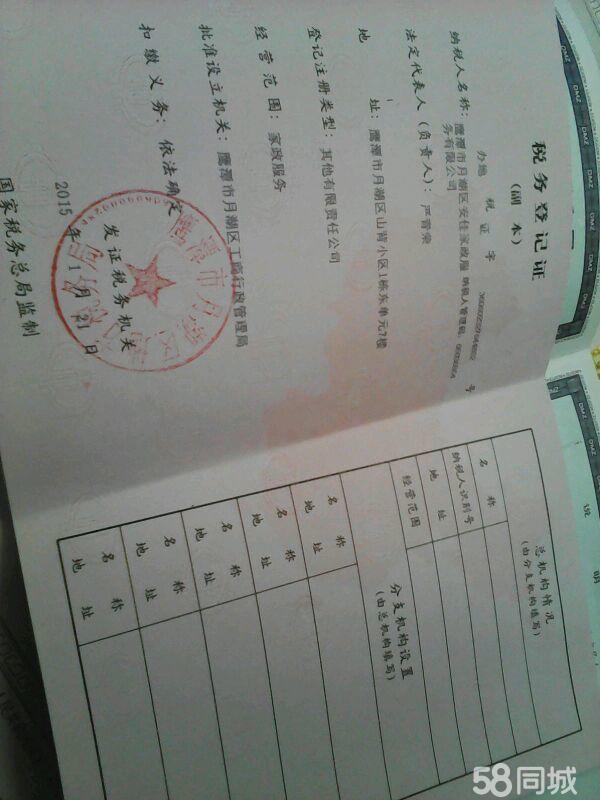 税务登记证
(副本)
税证字
号
纳税人名称:鹰潭市月湖区安佳家政服
务有限公司
法定代表人(负责人):严青荣
地址:鹰潭市月湖区山背小区1栋东单元7楼
登记注册类型:其他有限责任公司
经营范围:家政服务
批准设立机关:鹰潭市月湖区工商行政管理局
扣缴义务:依法确定
发证税务机关
2015年1月21日
国家税务总局监制
总机构情况
(由分支机构填写)
名称
纳税人识别号
地址
经营范围
分支机构设置
(由总机构填写)
名称
地址
名称
地址
名称
地址
名称
地址
名称
地址
58同城